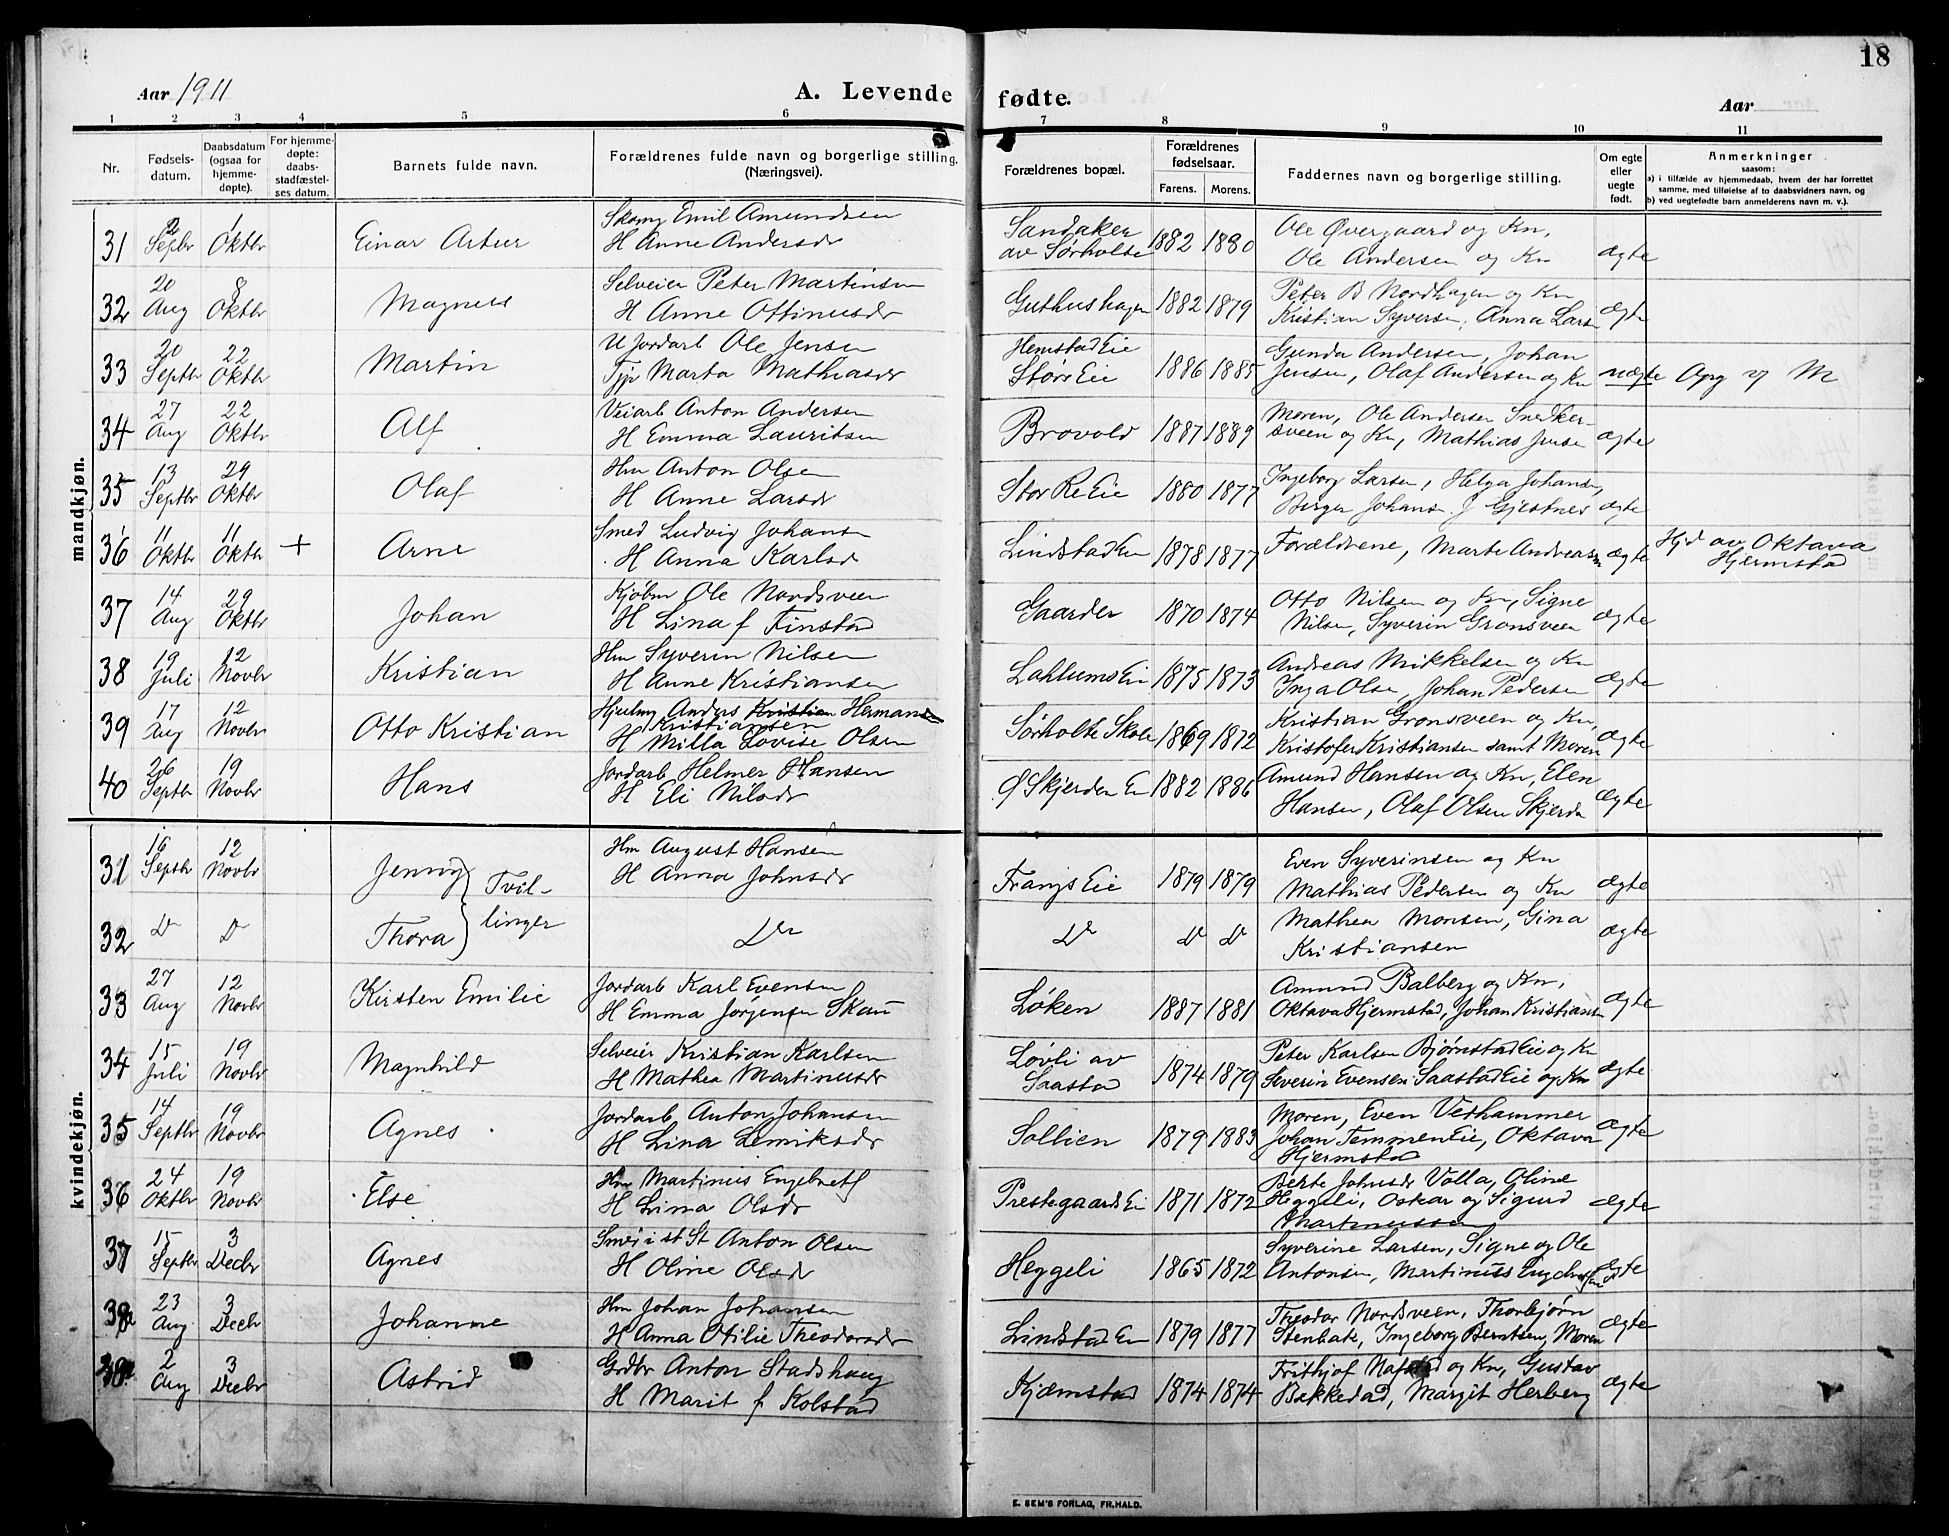 18
Aar 1911
A. Levende fødte.
Aar
1 2 3 4 5 6 7 8 9 10 11
Nr.
Fødsels-
datum.
Daabsdatum
(ogsaa for
hjemme-
døpte).
For hjemme-
døpte:
daabs-
stadfæstel-
ses datum.
Barnets fulde navn.
Forældrenes fulde navn og borgerlige stilling.
(Næringsvei).
Forældrenes bopæl.
Forældrenes
fødselsaar.
Farens. Morens.
Faddernes navn og borgerlige stilling.
Om egte
eller
uegte
født.
Anmerkninger
saasom:
a) i tilfælde av hjemmedaab, hvem der har forrettet
samme, med tilføielse af to daabsvidners navn, og
b) ved uegtefødte barn anmelderens navn m. v.).
mandkjøn.
31 2 Septbr 1 Oktbr Einar Artur
Emil Amundsen
H Anne Andersdr
Sandaker
av Sørholte
1882 1880
Ole Øvergaard og Kn,
Ole Andersen og Kn
ægte
32 20 Aug 8 Oktbr Magnus
Selveier Peter Martinsen
H Anne Ottinusdr
Guthushagen
1882 1879
Peter B Nordhagen og Kn
Kristian Syversen, Anna Larsen
ægte
33 20 Septbr 22 Oktbr Martin
U Jordarb Ole Jensen
Tjp Marta Mathiasdr
Hemstad Eie
Storr Eie
1886 1885
Gunda Andersen, Johan
Jensen, Olaf Andersen og Kn
uægte
Opg v M
34 27 Aug 22 Oktbr Alf
Veiarb Anton Andersen
H Emma Lauritsen
Brovold
1887 1889
Moren, Ole Andersen Snedker-
sveen og Kn, Mathias Jensen
ægte
35 13 Septbr 29 Oktbr Olaf
Hm Anton Olsen
H Anne Larsdr
Stor Re Eie
1880 1877
Ingeborg Larsen, Helga Johansen,
Birger Johansen. J Gjestnes
ægte
36 11 Oktbr 11 Oktbr + Arne
Smed Ludvig Johansen
H Anna Karlsdr
Lindstad Ee
1878 1877
Forældrene, Marte Andreasen
ægte
Hjd av Oktava
Hjermstad
37 14 Aug 29 Oktbr Johan
Kjøbm Ole Nordsveen
H Lina f Finstad
Gaarder
1870 1874
Otto Nilsen og Kn, Signe
Nilsen, Syverin Gronsveen
ægte
38 19 Juli 12 Novbr Kristian
Hm Syverin Nilsen
H Anne Kristiansen
Lahlums Ei
1875 1873
Andreas Mikkelsen og Kn
Inga Olsen, Johan Pedersen
ægte
39 17 Aug 12 Novbr Otto Kristian
Hjulmg Anders Kristian Hermansen
Kristiansen
H Milla Lovise Olsen
Sørholte Skole
1869 1872
Kristian Gronsveen og Kn,
Kristofer Kristiansen samt Moren
ægte
40 26 Septbr 19 Novbr Hans
Jordarb Helmer Hansen
H Eli Nilsdr
Ø Skjerden Ei
1882 1886
Amund Hansen og Kn, Elen
Hansen, Olaf Olsen Skjerda
ægte
kvindekjøn.
31 16 Septbr 12 Novbr Jenny } Tvil-
Hm August Hansen
H Anna Johnsdr
Frangs Eie
1879 1879
Even Syverinsen og Kn
Mathias Pedersen og Kn
ægte
32 Do Do Thora } linger
Do
Do Do Do
Mathea Monsen, Gina
Kristiansen
ægte
33 27 Aug 12 Novbr Kirsten Emilie
Jordarb Karl Evensen
H Emma Jørgensen Skau
Løken
1887 1881
Amund Balberg og Kn,
Oktava Hjermstad, Johan Kristiansen
ægte
34 15 Juli 19 Novbr Magnhild
Selveier Kristian Karlsen
H Mathea Martinusdr
Løvli av
Saastad
1874 1879
Peter Karlsen Bjørnstad Eie og Kn
Severin Evensen Saastad Eie og Kn
ægte
35 14 Septbr 19 Novbr Agnes
Jordarb Anton Johansen
H Lina Lemiksdr
Sollien
1879 1883
Moren, Even Vethammer
Johan Temmen Eie, Oktava
Hjermstad
ægte
36 24 Oktbr 19 Novbr Else
Hm Martinus Engebretsen
H Lina Olsdr
Prestegaards Ei
1871 1872
Berte Johnsdr Volla, Oline
Heggeli, Oskar og Sigurd
Martinussen
ægte
37 15 Septbr 3 Decbr Agnes
Anton Olsen
H Oline Olsdr
Heggeli
1865 1872
Syverine Larsen, Signe og Ole
Antonsen, Martinus Engebretsen
ægte
38 23 Aug 3 Decbr Johanne
Hm Johan Johansen
H Anna Otilie Theodorsdr
Lindstad Ei
1879 1877
Theodor Nordsveen, Thorbjørn
Stenbak, Ingeborg Berntsen, Moren
ægte
2 Aug 3 Decbr Astrid
Grdbr Anton Stadshaug
H Marit f Kolstad
Kjæmstad
1874 1874
Frithjof Nafstad og Kn, Gustav
Bakkedad, Margit Herberg
ægte
E. SEM'S FORLAG, FR.HALD.